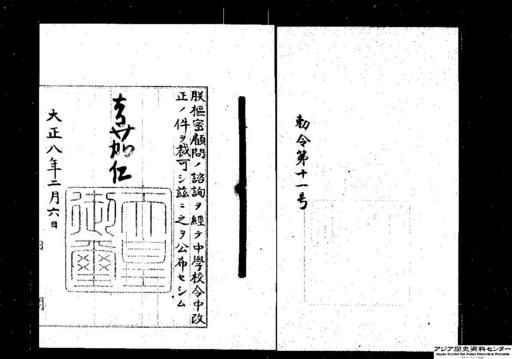 勅令第十一号
朕枢密顧問ノ諮詢ヲ経テ中学校令中改
正ノ件ヲ裁可シ茲ニ之ヲ公布セシム
嘉仁
天皇
御璽
大正八年二月六日
アジア歴史資料センター
Japan Center for Asian Historical Records